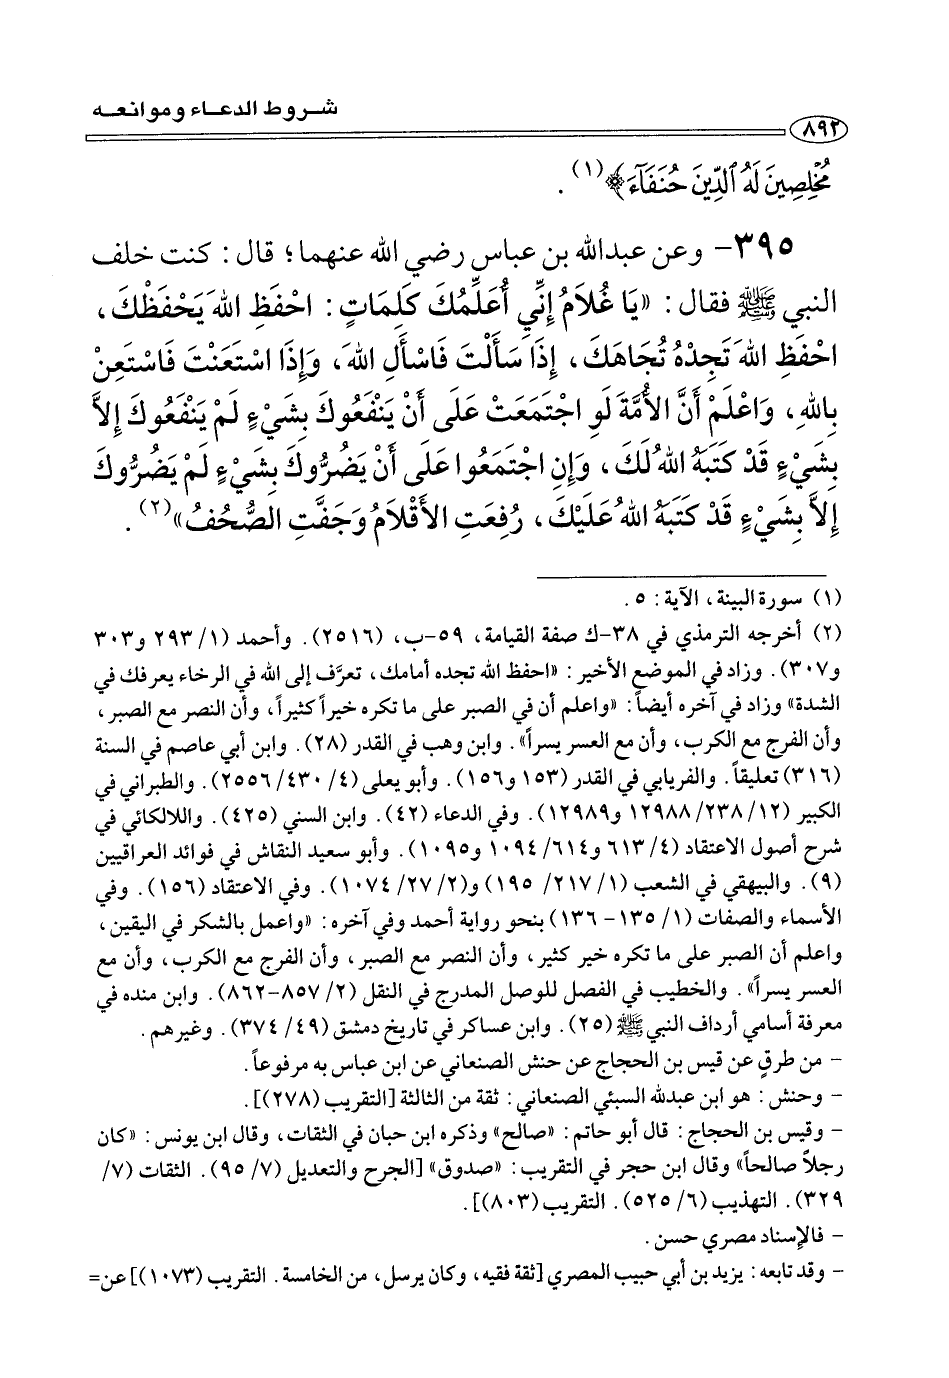 شروط الدعاء وموانعه
٨٩٢
مُخْلِصِينَ لَهُ ٱلدِّينَ حُنَفَآءَ﴾(١) .
٣٩٥- وعن عبدالله بن عباس رضي الله عنهما؛ قال: كنت خلف
النبي ﷺ فقال: «يَا غُلَامُ إِنِّي أُعَلِّمُكَ كَلِمَاتٍ: احْفَظِ اللهَ يَحْفَظْكَ،
احْفَظِ اللهَ تَجِدْهُ تُجَاهَكَ، إِذَا سَأَلْتَ فَاسْأَلِ اللهَ، وَإِذَا اسْتَعَنْتَ فَاسْتَعِنْ
بِاللهِ، وَاعْلَمْ أَنَّ الأُمَّةَ لَوِ اجْتَمَعَتْ عَلَى أَنْ يَنْفَعُوكَ بِشَيْءٍ لَمْ يَنْفَعُوكَ إِلاَّ
بِشَيْءٍ قَدْ كَتَبَهُ اللهُ لَكَ، وَإِنِ اجْتَمَعُوا عَلَى أَنْ يَضُرُّوكَ بِشَيْءٍ لَمْ يَضُرُّوكَ
إِلاَّ بِشَيْءٍ قَدْ كَتَبَهُ اللهُ عَلَيْكَ، رُفِعَتِ الأَقْلَامُ وَجَفَّتِ الصُّحُفُ»(٢) .
(١) سورة البينة، الآية: ٥ .
(٢) أخرجه الترمذي في ٣٨-ك صفة القيامة، ٥٩-ب، (٢٥١٦). وأحمد (١/ ٢٩٣ و٣٠٣
و٣٠٧). وزاد في الموضع الأخير: «احفظ الله تجده أمامك، تعرَّف إلى الله في الرخاء يعرفك في
الشدة» وزاد في آخره أيضاً: «واعلم أن في الصبر على ما تكره خيراً كثيراً، وأن النصر مع الصبر،
وأن الفرج مع الكرب، وأن مع العسر يسراً». وابن وهب في القدر (٢٨). وابن أبي عاصم في السنة
(٣١٦) تعليقاً. والفريابي في القدر (١٥٣ و١٥٦). وأبو يعلى (٤/ ٤٣٠/ ٢٥٥٦). والطبراني في
الكبير (١٢/ ٢٣٨/ ١٢٩٨٨ و١٢٩٨٩). وفي الدعاء (٤٢). وابن السني (٤٢٥). واللالكائي في
شرح أصول الاعتقاد (٤/ ٦١٣ و٦١٤/ ١٠٩٤ و١٠٩٥). وأبو سعيد النقاش في فوائد العراقيين
(٩). والبيهقي في الشعب (١/ ٢١٧/ ١٩٥) و(٢/ ٢٧/ ١٠٧٤). وفي الاعتقاد (١٥٦). وفي
الأسماء والصفات (١/ ١٣٥- ١٣٦) بنحو رواية أحمد وفي آخره: «واعمل بالشكر في اليقين،
واعلم أن الصبر على ما تكره خير كثير، وأن النصر مع الصبر، وأن الفرج مع الكرب، وأن مع
العسر يسراً». والخطيب في الفصل للوصل المدرج في النقل (٢/ ٨٥٧-٨٦٢). وابن منده في
معرفة أسامي أرداف النبي ﷺ (٢٥). وابن عساكر في تاريخ دمشق (٤٩/ ٣٧٤). وغيرهم.
- من طرقٍ عن قيس بن الحجاج عن حنش الصنعاني عن ابن عباس به مرفوعاً.
- وحنش: هو ابن عبدلله السبئي الصنعاني: ثقة من الثالثة [التقريب (٢٧٨)].
- وقيس بن الحجاج: قال أبو حاتم: «صالح» وذكره ابن حبان في الثقات، وقال ابن يونس: «كان
رجلاً صالحاً» وقال ابن حجر في التقريب: «صدوق» [الجرح والتعديل (٧/ ٩٥). الثقات (٧/
٣٢٩). التهذيب (٦/ ٥٢٥). التقريب (٨٠٣)].
- فالإسناد مصري حسن.
- وقد تابعه: يزيد بن أبي حبيب المصري [ثقة فقيه، وكان يرسل، من الخامسة. التقريب (١٠٧٣)] عن=